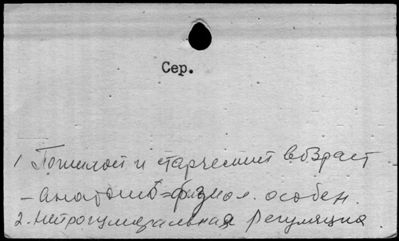 Сер.
1 Пожилой и старческий возраст
- анатомо-физиол. особен.
2. Нейрогуморальная регуляция.